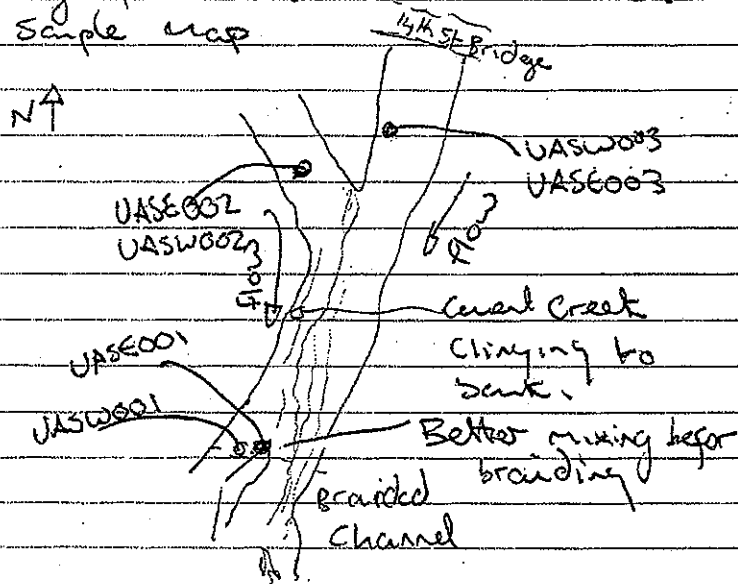 Sample Map
14th St Bridge
N
UASW003
UASE003
UASE002
UASW002
Flow
Flow
Cement Creek
Clinging to
bank.
UASE001
UASW001
Better mixing befor
braiding
Braided
Channel